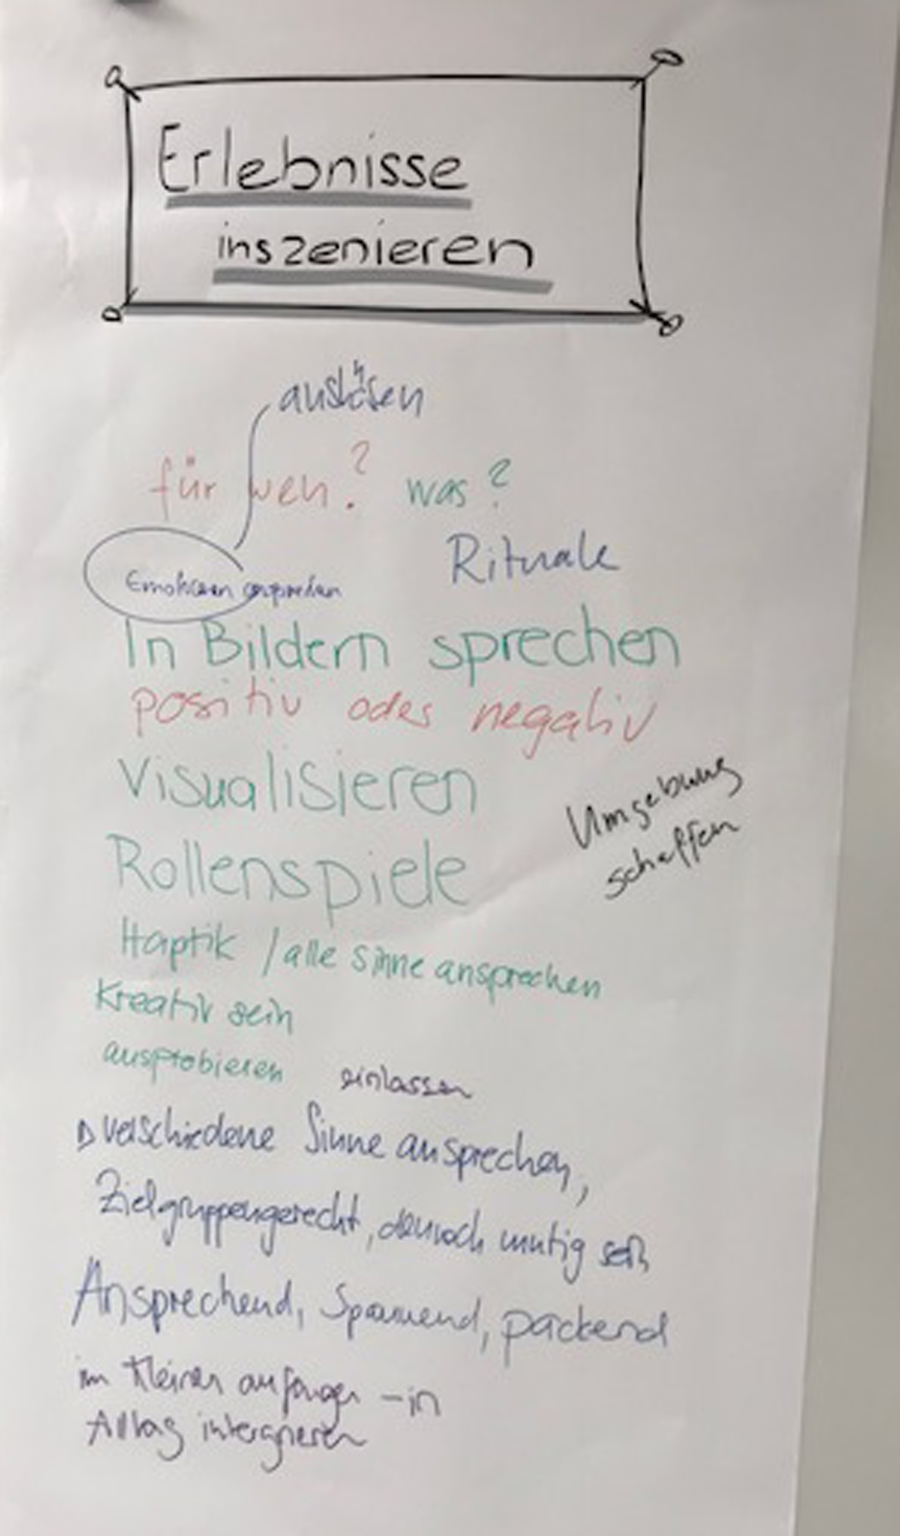 Erlebnisse
inszenieren
auslösen
für wen? was?
Rituale
Emotionen ansprechen
In Bildern sprechen
positiv oder negativ
Visualisieren
Umgebung
schaffen
Rollenspiele
Haptik / alle Sinne ansprechen
Kreativ sein
ausprobieren einlassen
verschiedene Sinne ansprechen,
Zielgruppengerecht, dennoch mutig sein
Ansprechend, Spannend, packend
im Kleinen anfangen - in
Alltag intergrieren